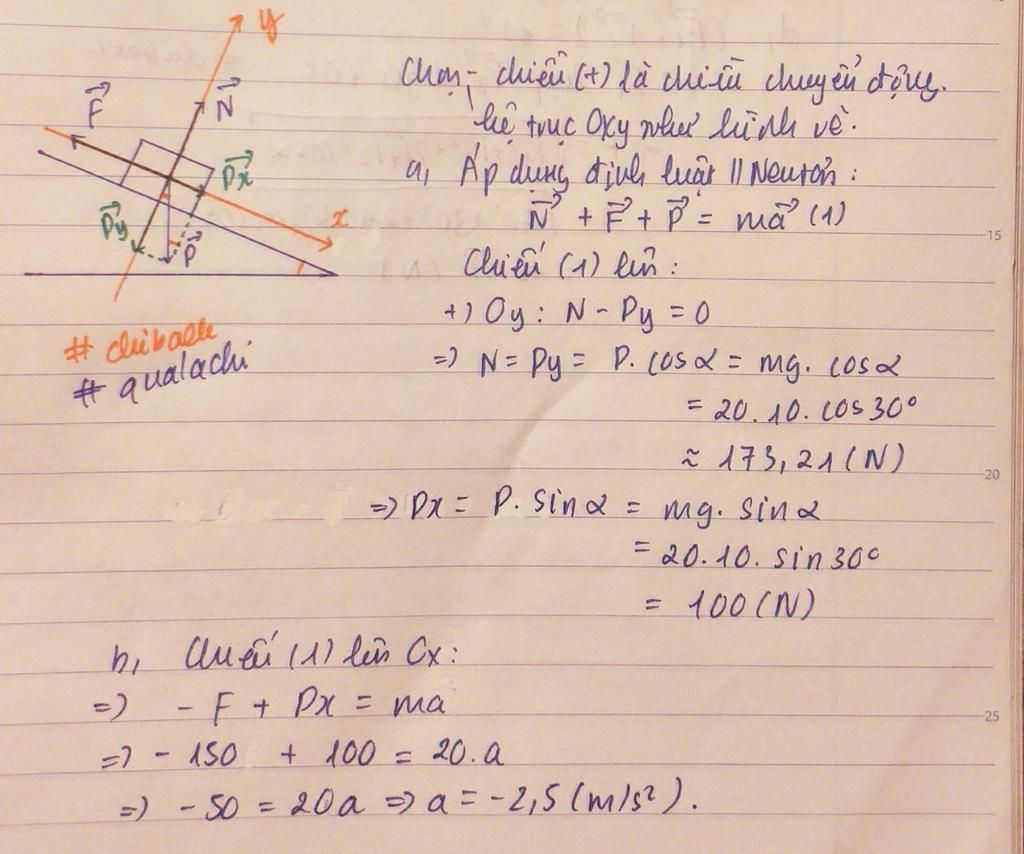 y
F⃗
N⃗
P⃗x
P⃗y
P⃗
x
# chibach
# qualachi
Chọn - chiều (+) là chiều chuyển động.
hệ trục Oxy như hình vẽ.
a, Áp dụng định luật II Newton:
N⃗ + F⃗ + P⃗ = ma⃗ (1)
Chiếu (1) lên:
+) Oy: N - Py = 0
=> N = Py = P. cosα = mg. cosα
= 20.10.cos30°
≈ 173,21(N)
=> Px = P. sinα = mg. sinα
= 20.10. sin30°
= 100(N)
b, Chiếu (1) lên Ox:
=> - F + Px = ma
=> - 150 + 100 = 20.a
=> - 50 = 20a => a = -2,5 (m/s²).
15
20
25